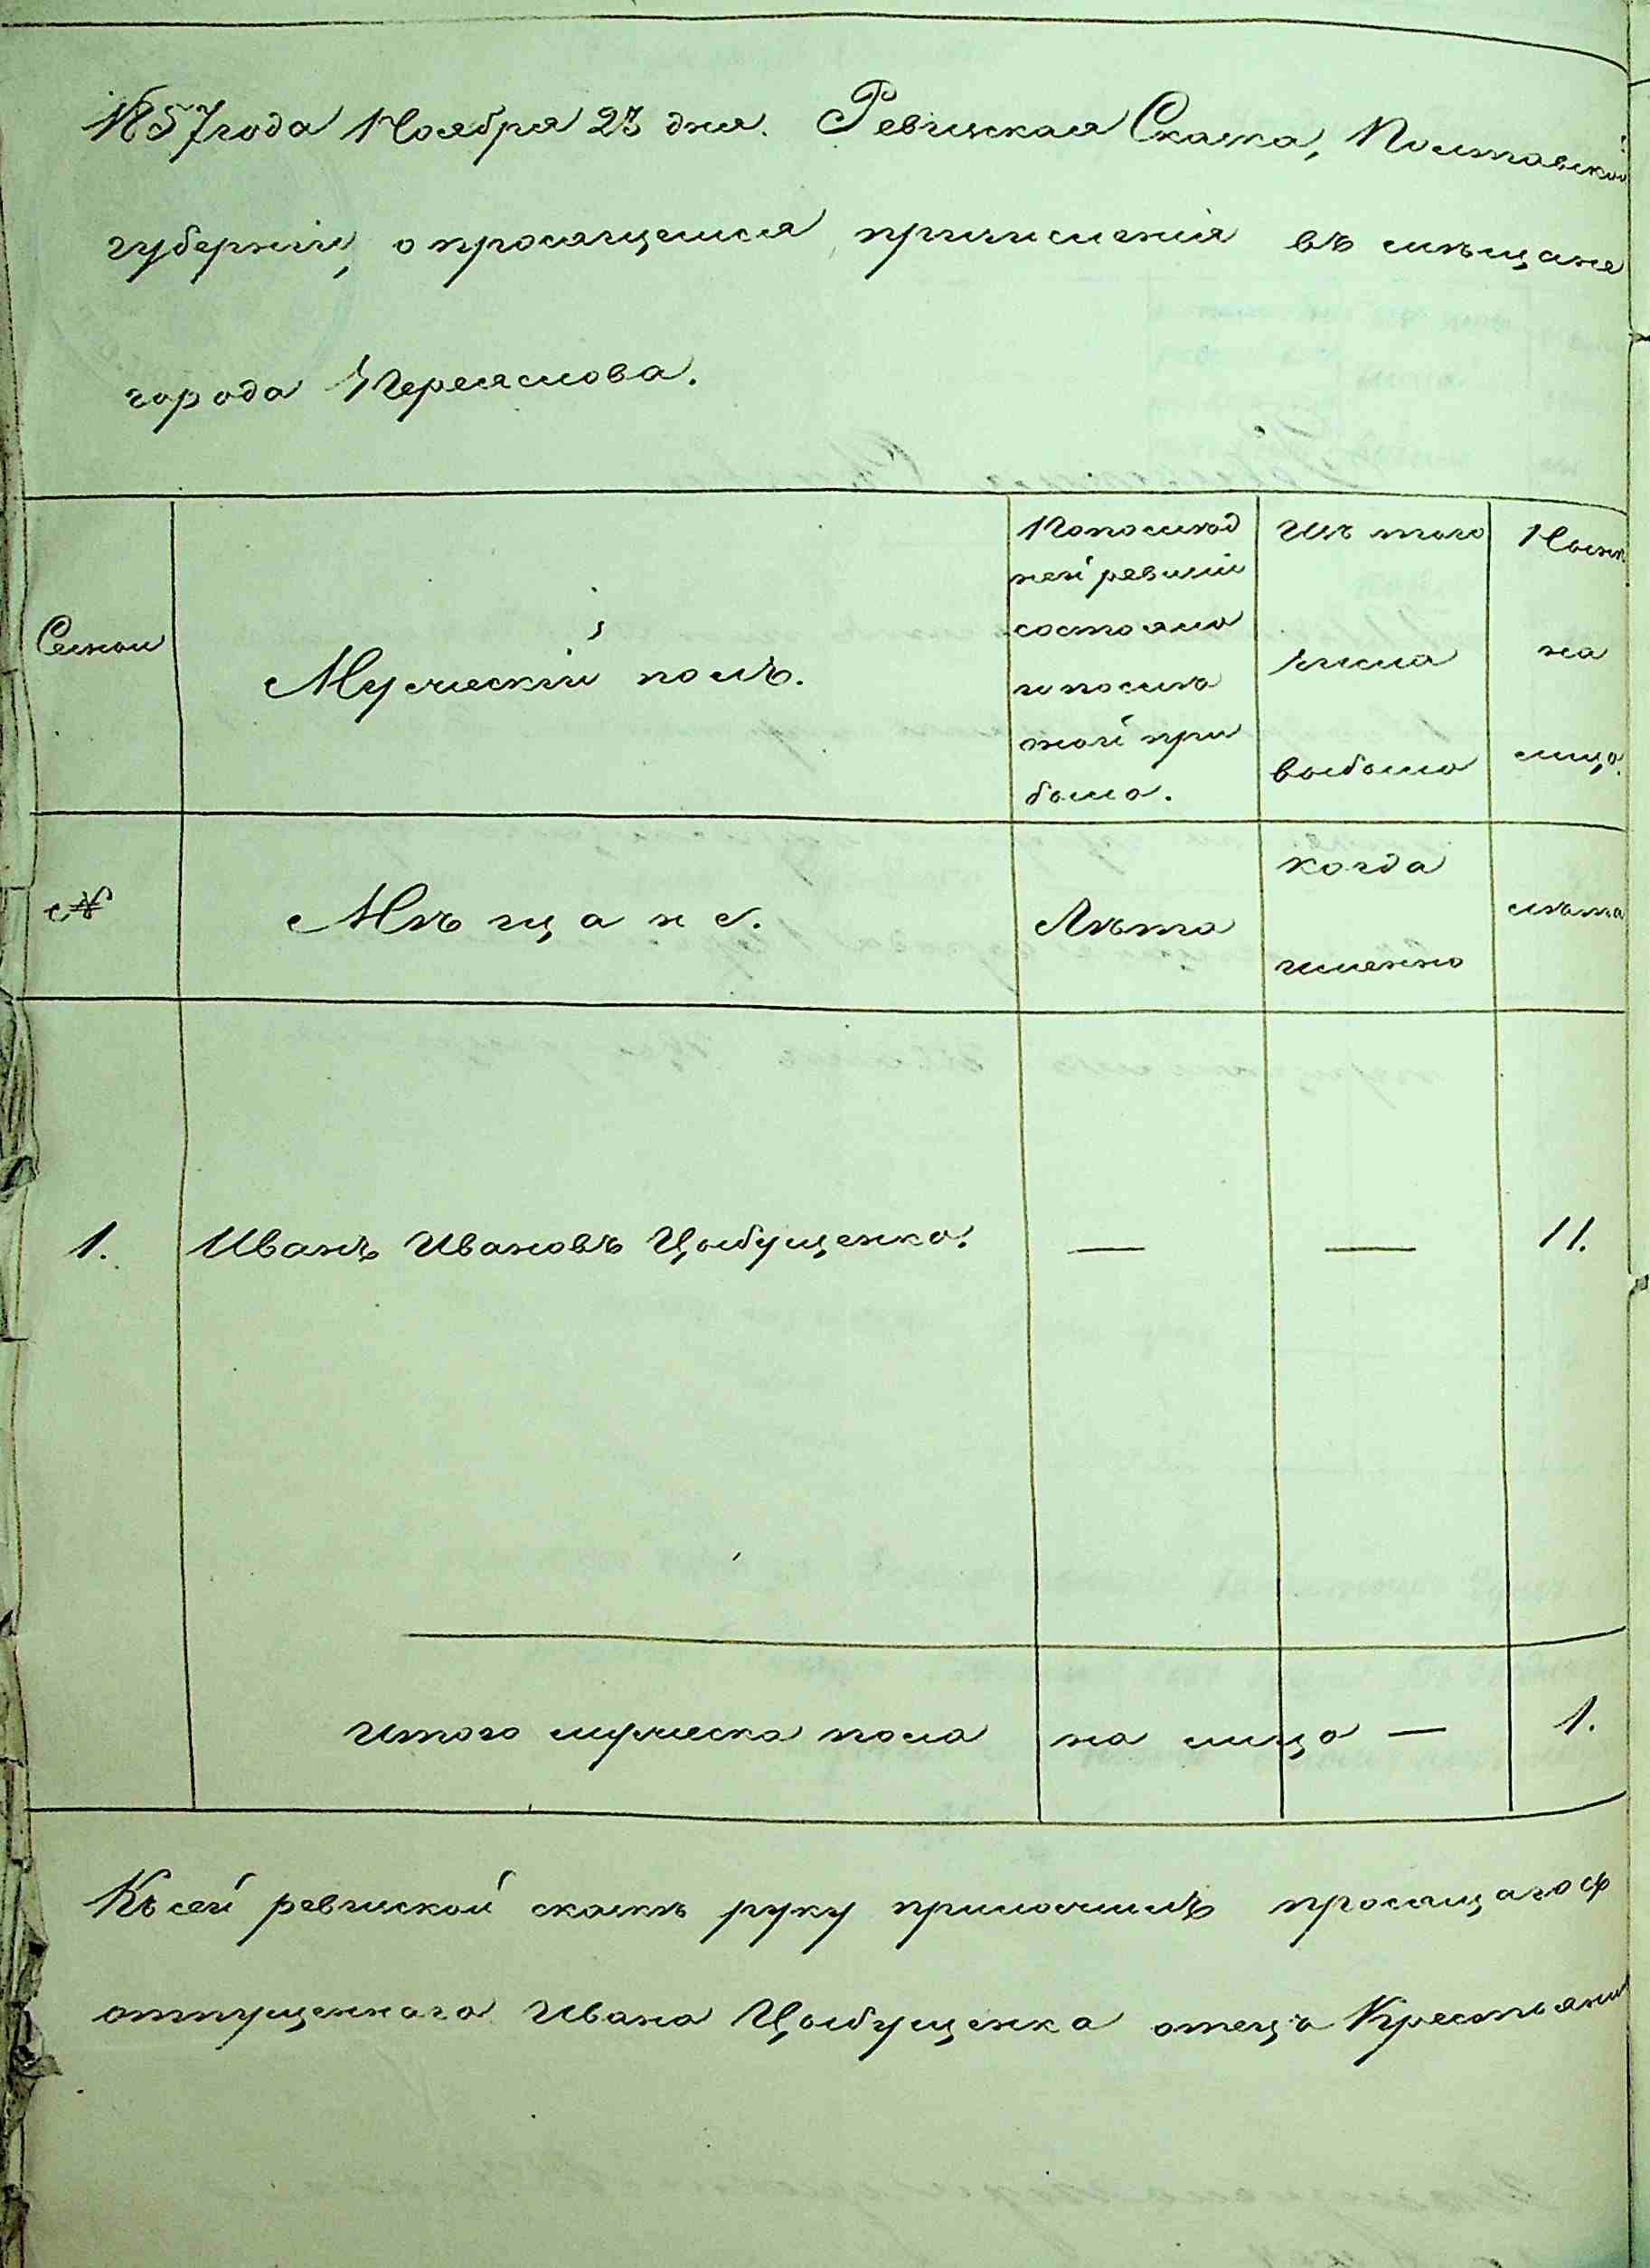 1857 года Ноября 23 дня. Ревизская Сказка, Полтавской
губерніи, о просящемся причисленія въ мѣщане
города Переяслова.
Семьи
Мужескій полъ.
По послѣд
ней ревизіи
состояло
и послѣ
оной при
было.
Изъ того
числа
выбыло
Нынѣ
на
лицо.
№
Мѣщане.
Лѣта
когда
именно
лѣта
1. Иванъ Ивановъ Цыбущенко. — — 11.
Итого мужеска пола на лицо — 1.
Къ сей ревизской сказкѣ руку приложилъ просящагося
отпущеннаго Ивана Цыбущенка отецъ Крестьянин